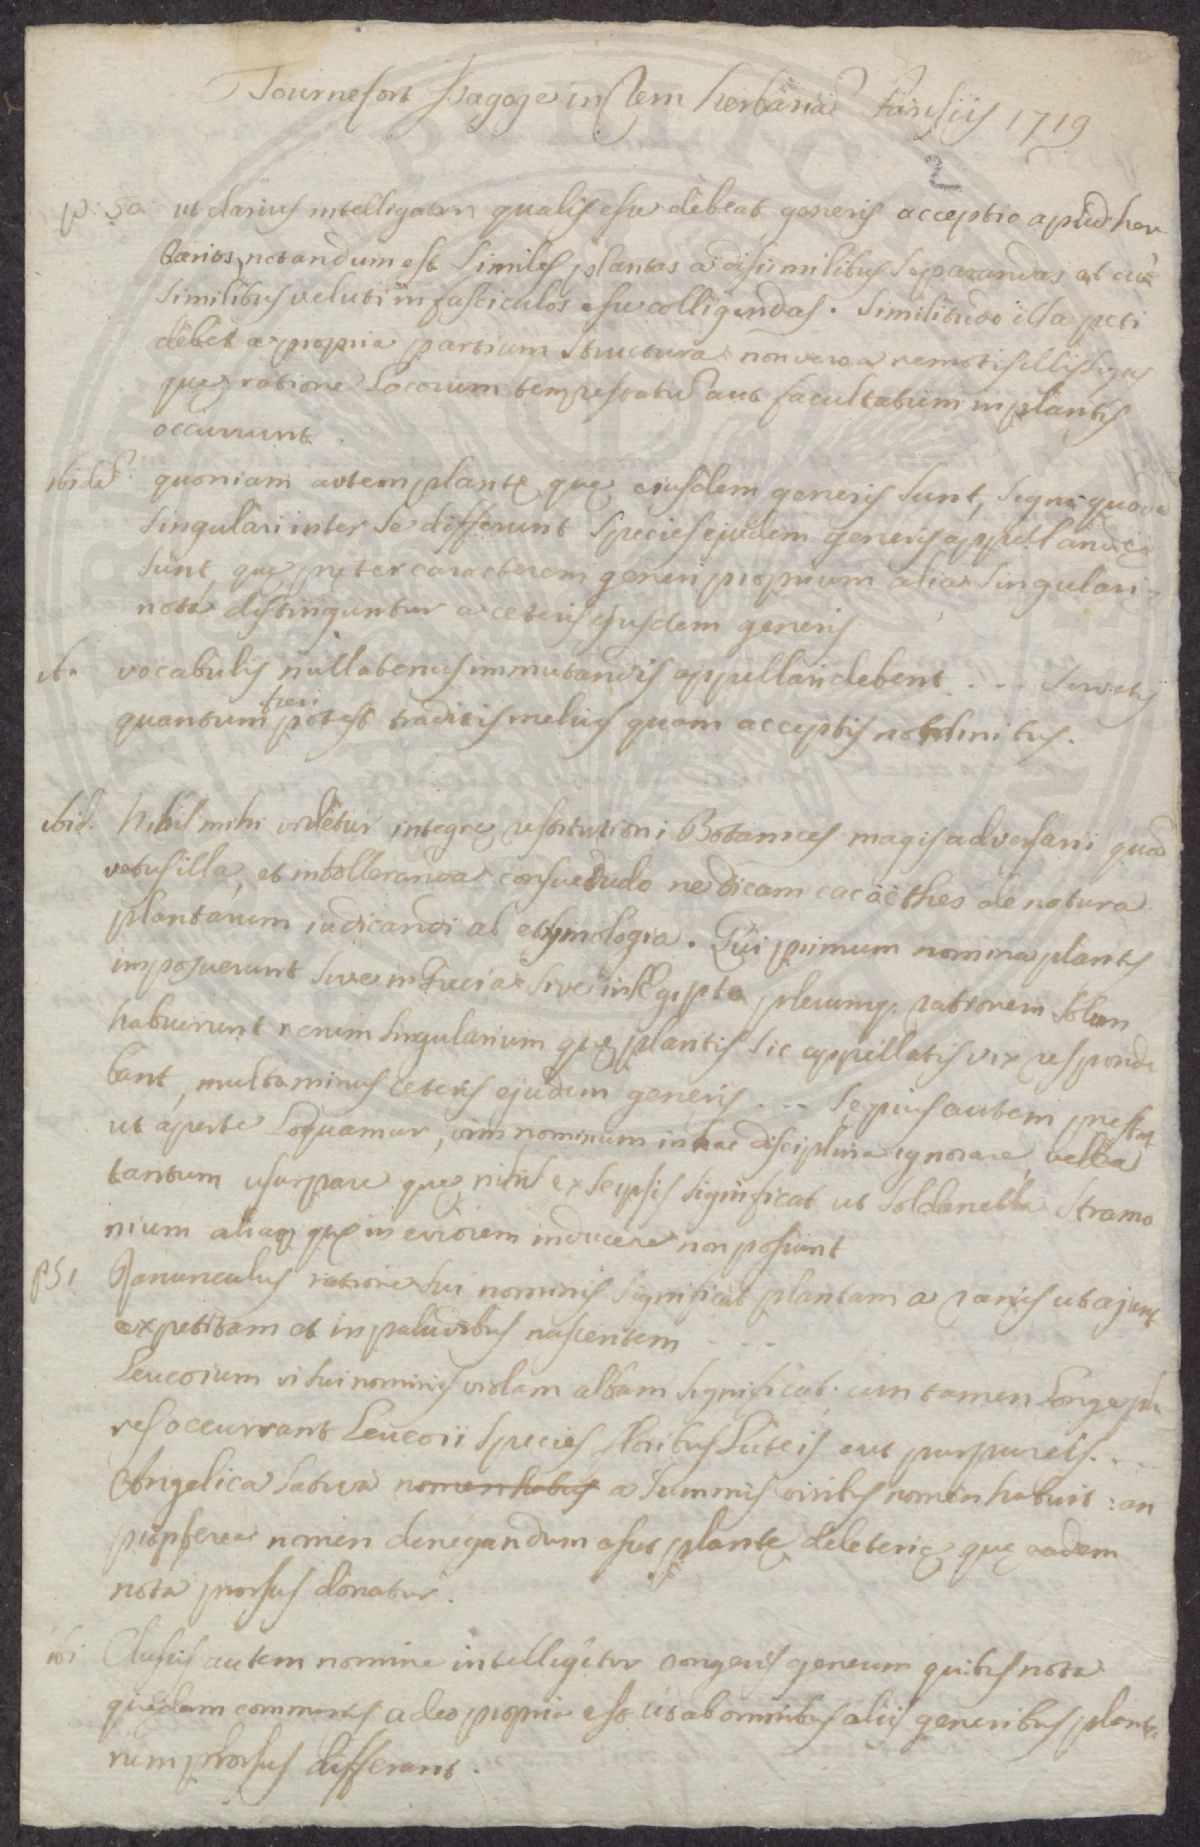 Tournefort Isagoge in Rem herbariā Parisiis 1719
2
p. 50 ut clarius intelligatur qualis esse debeat generis acceptio apud her
barios, notandum est similes plantas a dissimilibus separandas et cū
similibus veluti in fasciculos esse colligendas. Similitudo illa peti
debet a propria partium structura non vero a remotis illis signis
quę ratione locorum tempestatū aut facultatum in plantis
occurrunt
ibidē. quoniam autem plantę quę eiusdem generis sunt, signo quodā
singulari inter se differunt species ejusdem generis appellandę
sunt, quę pręter caracterem generi proprium alia singulari
nota distinguntur a ceteris ejusdem generis
ib. vocabulis nullatenus immutandis appellari debent . . . servatis
quantum fieri potest traditis melius quam acceptis nominibus.
ibid. Nihil mihi videtur integrę restitutioni Botanices magis adversari quā
vetus illa, et intolleranda consuetudo ne dicam cacoëthes de natura
plantarum iudicandi ab ethimologia. Qui primum nomina plantis
imposuerunt sive in Grecia sive in Ęgipto plerumq. rationem solum
habuerunt rerum singularium quę plantis sic appellatis vix responde
bant, multo minus ceteris ejusdem generis . . . Sepius autem prestat
ut aperte loquamur, vim nominum in hac disciplina ignorare, verba
tantum usurpare quę nihil ex seipsis significat ut Soldanella Stramo
nium aliaq quę in errorem inducere non possunt
p51 Ranunculus ratione sui nominis significat plantam a ranis ut ajunt
expetitam et in paludibus nascentem . . .
Leucoium vi sui nominis violam albam significat. cum tamen longe plu
res occurrant Leucoii species floribus luteis aut purpureis. . .
Angelica sativa nomen habuit a summis viribus nomen habuit : an
propterea nomen denegandum esset plantę deleterię quę eadem
nota prorsus donatur.
ibi Classis autem nomine intelligitur congeries generum quibus nota
quędam communis adeo propria est ut ab omnibus aliis generibus planta
rum prorsus differant.